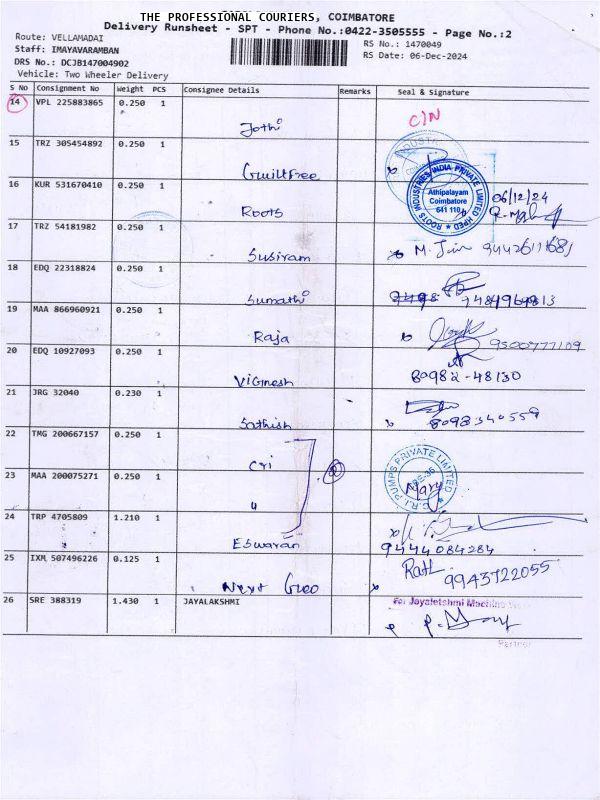 THE PROFESSIONAL COURIERS, COIMBATORE
Delivery Runsheet - SPT - Phone No.:0422-3505555 - Page No.:2
Route: VELLAMADAI
RS No.: 1470049
Staff: IMAYAVARAMBAN
RS Date: 06-Dec-2024
DRS No.: DCJB147004902
Vehicle: Two Wheeler Delivery
S No Consignment No Weight PCS Consignee Details Remarks Seal & Signature
14 VPL 225883865 0.250 1 Jothi C/N
15 TRZ 305454892 0.250 1 Guiltfree
16 KUR 531670410 0.250 1 Roots
ROOTS INDUSTRIES INDIA PRIVATE LIMITED
Athipalayam
Coimbatore
641 110
06/12/24
17 TRZ 54181982 0.250 1 Susiram M. 9442611681
18 EDQ 22318824 0.250 1 Sumathi 7484969813
19 MAA 866960921 0.250 1 Raja 9500777109
20 EDQ 10927093 0.250 1 Vignesh 80982-48130
21 JRG 32040 0.230 1 Sathish 8098340559
22 TMG 200667157 0.250 1 Cri
C.R.I. PUMPS PRIVATE LIMITED
Mary
23 MAA 200075271 0.250 1 "
24 TRP 4705809 1.210 1 Eswaran
9444084284
25 IXM 507496226 0.125 1 Next Geo 9943722055
26 SRE 388319 1.430 1 JAYALAKSHMI
For Jayaletshmi Machine
Partner